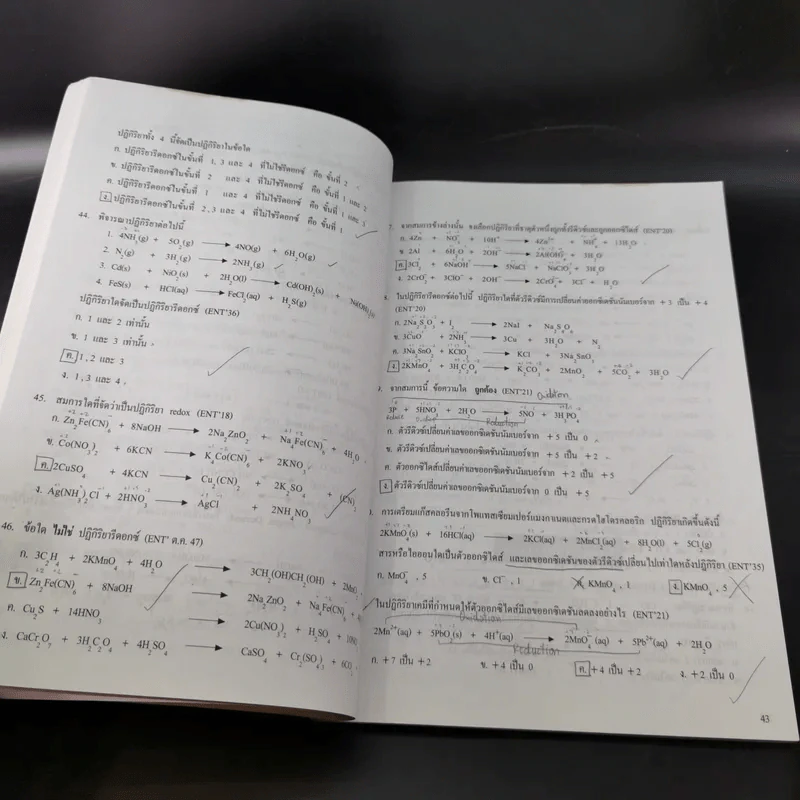 ปฏิกิริยาทั้ง 4 นี้จัดเป็นปฏิกิริยาในข้อใด
ก. ปฏิกิริยารีดอกซ์ในขั้นที่ 1, 3 และ 4 ที่ไม่ใช่รีดอกซ์ คือ ขั้นที่ 2
ข. ปฏิกิริยารีดอกซ์ในขั้นที่ 2 และ 4 ที่ไม่ใช่รีดอกซ์ คือ ขั้นที่ 1 และ
ค. ปฏิกิริยารีดอกซ์ในขั้นที่ 1 และ 4 ที่ไม่ใช่รีดอกซ์ คือ ขั้นที่
ง. ปฏิกิริยารีดอกซ์ในขั้นที่ 2, 3 และ 4 ที่ไม่ใช่รีดอกซ์ คือ ขั้นที่ 1
44. พิจารณาปฏิกิริยาต่อไปนี้
1. 4NH₃(g) + 5O₂(g) → 4NO(g) + 6H₂O(g)
2. N₂(g) + 3H₂(g) → 2NH₃(g)
3. Cd(s) + NiO₂(s) + 2H₂O(l) → Cd(OH)₂(s) + Ni(OH)₂(s)
4. FeS(s) + HCl(aq) → FeCl₂(aq) + H₂S(g)
ปฏิกิริยาใดจัดเป็นปฏิกิริยารีดอกซ์ (ENT'36)
ก. 1 และ 2 เท่านั้น
ข. 1 และ 3 เท่านั้น
ค. 1, 2 และ 3
ง. 1, 3 และ 4
45. สมการใดที่จัดว่าเป็นปฏิกิริยา redox (ENT'18)
ก. Zn₂Fe(CN)₆ + 8NaOH → 2Na₂ZnO₂ + Na₄Fe(CN)₆ + 4H₂O
ข. Co(NO₃)₂ + 6KCN → K₄Co(CN)₆ + 2KNO₃
ค. 2CuSO₄ + 4KCN → Cu₂(CN)₂ + 2K₂SO₄ + (CN)₂
ง. Ag(NH₃)₂Cl + 2HNO₃ → AgCl + 2NH₄NO₃
46. ข้อใด ไม่ใช่ ปฏิกิริยารีดอกซ์ (ENT' ต.ค. 47)
ก. 3C₂H₄ + 2KMnO₄ + 4H₂O → 3CH₂(OH)CH₂(OH) + 2MnO₂
ข. Zn₂Fe(CN)₆ + 8NaOH → 2Na₂ZnO₂ + Na₄Fe(CN)₆
ค. Cu₂S + 14HNO₃ → 2Cu(NO₃)₂ + H₂SO₄ +
ง. CaCr₂O₇ + 3H₂C₂O₄ + 4H₂SO₄ → CaSO₄ + Cr₂(SO₄)₃ + 6CO₂
จากสมการข้างล่างนั้น จงเลือกปฏิกิริยาที่ธาตุตัวหนึ่งถูกทั้งรีดิวซ์และถูกออกซิไดส์ (ENT'20)
ก. 4Zn + NO₃⁻ + 10H⁺ → 4Zn²⁺ + NH₄⁺ + 13H₂O
ข. 2Al + 6H₂O + 2OH⁻ → 2Al(OH)₄⁻ + 3H₂O
ค. 3Cl₂ + 6NaOH → 5NaCl + NaClO₃ + 3H₂O
ง. 2CrO₂⁻ + 3ClO⁻ + 2OH⁻ → 2CrO₄²⁻ + 3Cl⁻ + H₂O
ในปฏิกิริยารีดอกซ์ต่อไปนี้ ปฏิกิริยาใดที่ตัวรีดิวซ์มีการเปลี่ยนค่าออกซิเดชันนัมเบอร์จาก +3 เป็น +4
(ENT'20)
ก. 2Na₂S₂O₃ + I₂ → 2NaI + Na₂S₄O₆
ข. 3CuO + 2NH₃ → 3Cu + 3H₂O + N₂
ค. 3Na₂SnO₂ + KClO₃ → KCl + 3Na₂SnO₃
ง. 2KMnO₄ + 3H₂C₂O₄ → K₂CO₃ + 2MnO₂ + 5CO₂ + 3H₂O
จากสมการนี้ ข้อความใด ถูกต้อง (ENT'21) Oxidation
3P + 5HNO₃ + 2H₂O → 5NO + 3H₃PO₄
Reduction
ก. ตัวรีดิวซ์เปลี่ยนค่าเลขออกซิเดชันนัมเบอร์จาก +5 เป็น 0
ข. ตัวรีดิวซ์เปลี่ยนค่าเลขออกซิเดชันนัมเบอร์จาก +5 เป็น +2
ค. ตัวออกซิไดส์เปลี่ยนค่าเลขออกซิเดชันนัมเบอร์จาก +2 เป็น +5
ง. ตัวรีดิวซ์เปลี่ยนค่าเลขออกซิเดชันนัมเบอร์จาก 0 เป็น +5
การเตรียมแก๊สคลอรีนจากโพแทสเซียมเปอร์แมงกาเนตและกรดไฮโดรคลอริก ปฏิกิริยาเกิดขึ้นดังนี้
2KMnO₄(s) + 16HCl(aq) → 2KCl(aq) + 2MnCl₂(aq) + 8H₂O(l) + 5Cl₂(g)
สารหรือไอออนใดเป็นตัวออกซิไดส์ และเลขออกซิเดชันของตัวรีดิวซ์เปลี่ยนไปเท่าใดหลังปฏิกิริยา (ENT'35)
ก. MnO₄⁻, 5 ข. Cl⁻, 1 ค. KMnO₄, 1 ง. KMnO₄, 5
ในปฏิกิริยาเคมีที่กำหนดให้ตัวออกซิไดส์มีเลขออกซิเดชันลดลงอย่างไร (ENT'21)
Oxidation
2Mn²⁺(aq) + 5PbO₂(s) + 4H⁺(aq) → 2MnO₄⁻(aq) + 5Pb²⁺(aq) + 2H₂O
Reduction
ก. +7 เป็น +2 ข. +4 เป็น 0 ค. +4 เป็น +2 ง. +2 เป็น 0
43